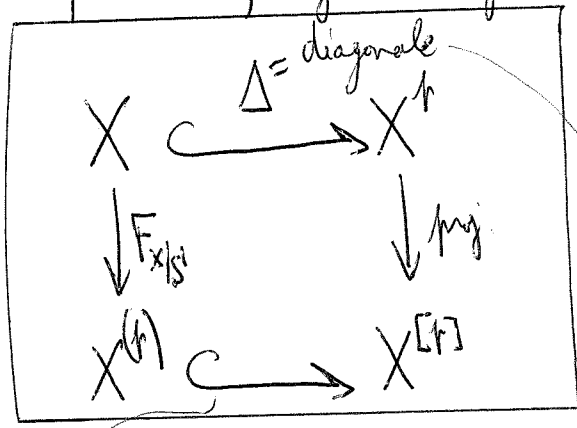 Δ = diagonale
X ↪ X^p
F_{X/S} proj.
X^{(p)} ↪ X^{[p]}